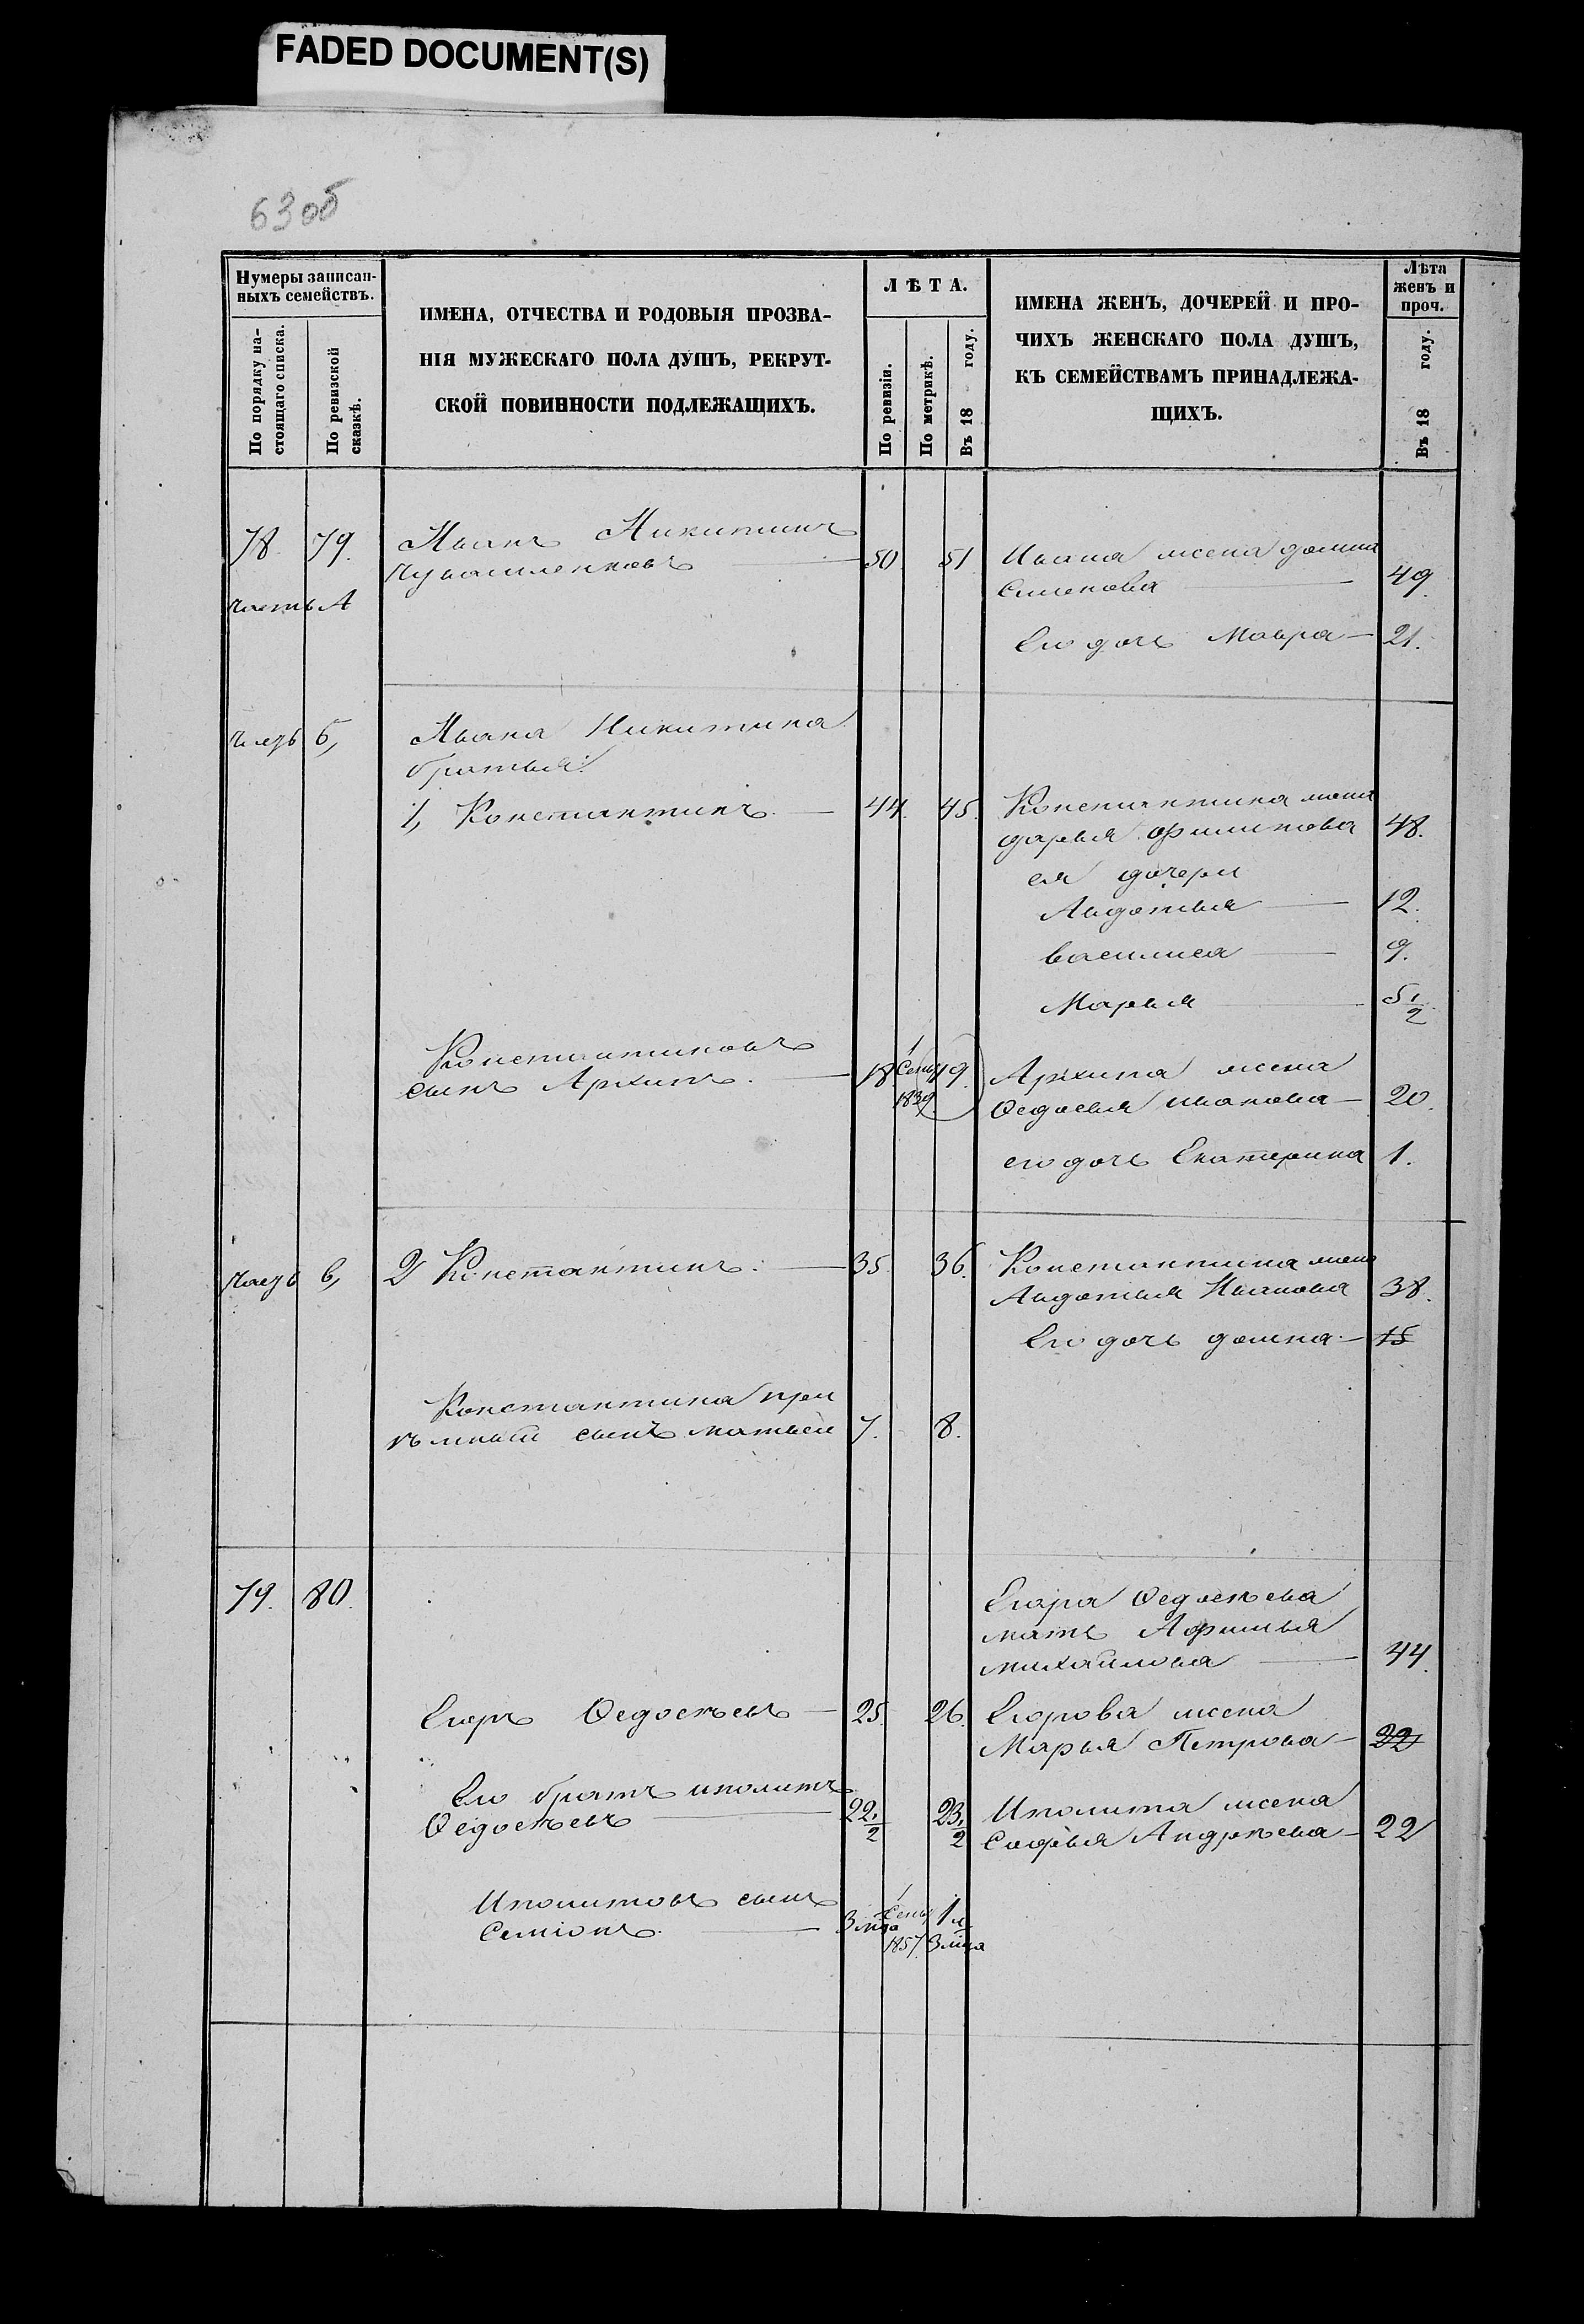 FADED DOCUMENT(S)
63об
Нумеры записан-
ныхъ семействъ.
По порядку на-
стоящаго списка.
По ревизской
сказкѣ.
ИМЕНА, ОТЧЕСТВА И РОДОВЫЯ ПРОЗВА-
НІЯ МУЖЕСКАГО ПОЛА ДУШЪ, РЕКРУТ-
СКОЙ ПОВИННОСТИ ПОДЛЕЖАЩИХЪ.
ЛѢТА.
По ревизіи.
По метрикѣ.
Въ 18 году.
ИМЕНА ЖЕНЪ, ДОЧЕРЕЙ И ПРО-
ЧИХЪ ЖЕНСКАГО ПОЛА ДУШЪ,
КЪ СЕМЕЙСТВАМЪ ПРИНАДЛЕЖА-
ЩИХЪ.
Лѣта
женъ и
проч.
Въ 18 году.
78. 79. Иванъ Никитинъ
50. 51 Ивана жена домна
Семенова 49.
часть А
Его дочь Мавра — 21.
часть б, Ивана Никитина
братья:
1, Константинъ. — 44. 45. Константина жена
дарья Филипова 48.
ея дочери
Авдотья — 12.
василиса — 9.
Марья — 5 1/2
Константиновъ
сынъ Архипъ. — 18. 1 Сент 1839. 19. Архипа жена
Ѳедосья иванова — 20.
его дочь Екатерина 1.
часть в, 2 Константинъ. — 35. 36. Константина жена
Авдотья Иванова 38.
Его дочь домна — 15
Константина прі
ѣмный сынъ матвей 7. 8.
79. 80. Егора Ѳедосѣева
мать Афимья
михайлова — 44.
Егоръ Ѳедосѣевъ — 25. 26. Егорова жена
Марья Петрова — 22
Его братъ иполитъ
Ѳедосѣевъ — 22 1/2 23 1/2 Иполита жена
Софья Андрѣева — 22
Иполитовъ сынъ
Семіонъ. — 3 мца 1 Сент 1857. 1 л. 3 мца